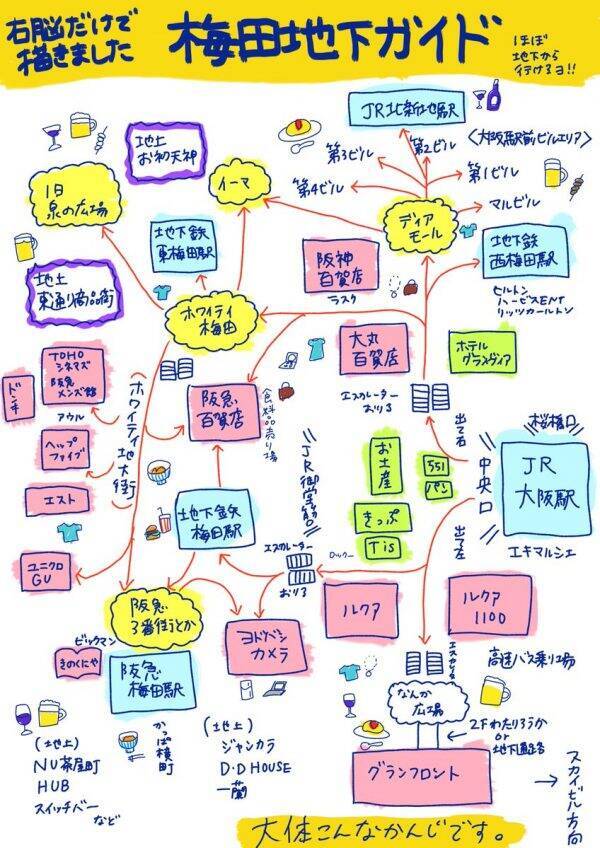 右脳だけで
描きました
梅田地下ガイド
ほぼ
地下から
行けるヨ!!
JR北新地駅
地上
お初天神
第3ビル
第2ビル
<大阪駅前ビルエリア>
第4ビル
第1ビル
マルビル
旧
泉の広場
イーマ
ディア
モール
地下鉄
東梅田駅
阪神
百貨店
ラスク
地下鉄
西梅田駅
ヒルトン
ハービスENT
リッツカールトン
地上
東通り商店街
ホワイティ
梅田
大丸
百貨店
ホテル
グランヴィア
TOHO
シネマズ
阪急
メンズ館
ドンキ
アウル
ヘップ
ファイブ
エスト
ユニクロ
GU
(ホワイティ地下街)
阪急
百貨店
食料品売り場
エスカレーター
おりる
出て右
桜橋口
JR
大阪駅
中央口
エキマルシェ
出て左
お土産
551
パン
きっぷ
Tis
JR御堂筋口
地下鉄
梅田駅
エスカレーター
おりる
ルクア
ルクア
1100
阪急
3番街とか
ヨドバシ
カメラ
ビックマン
きのくにや
阪急
梅田駅
エスカレーター
高速バス乗り場
なんか
広場
2Fわたりろうか
or
地下通路
グランフロント
スカイビル方向
(地上)
NU茶屋町
HUB
スイッチバー
など
かっぱ横町
(地上)
ジャンカラ
D・D HOUSE
一蘭
大体こんなかんじです。